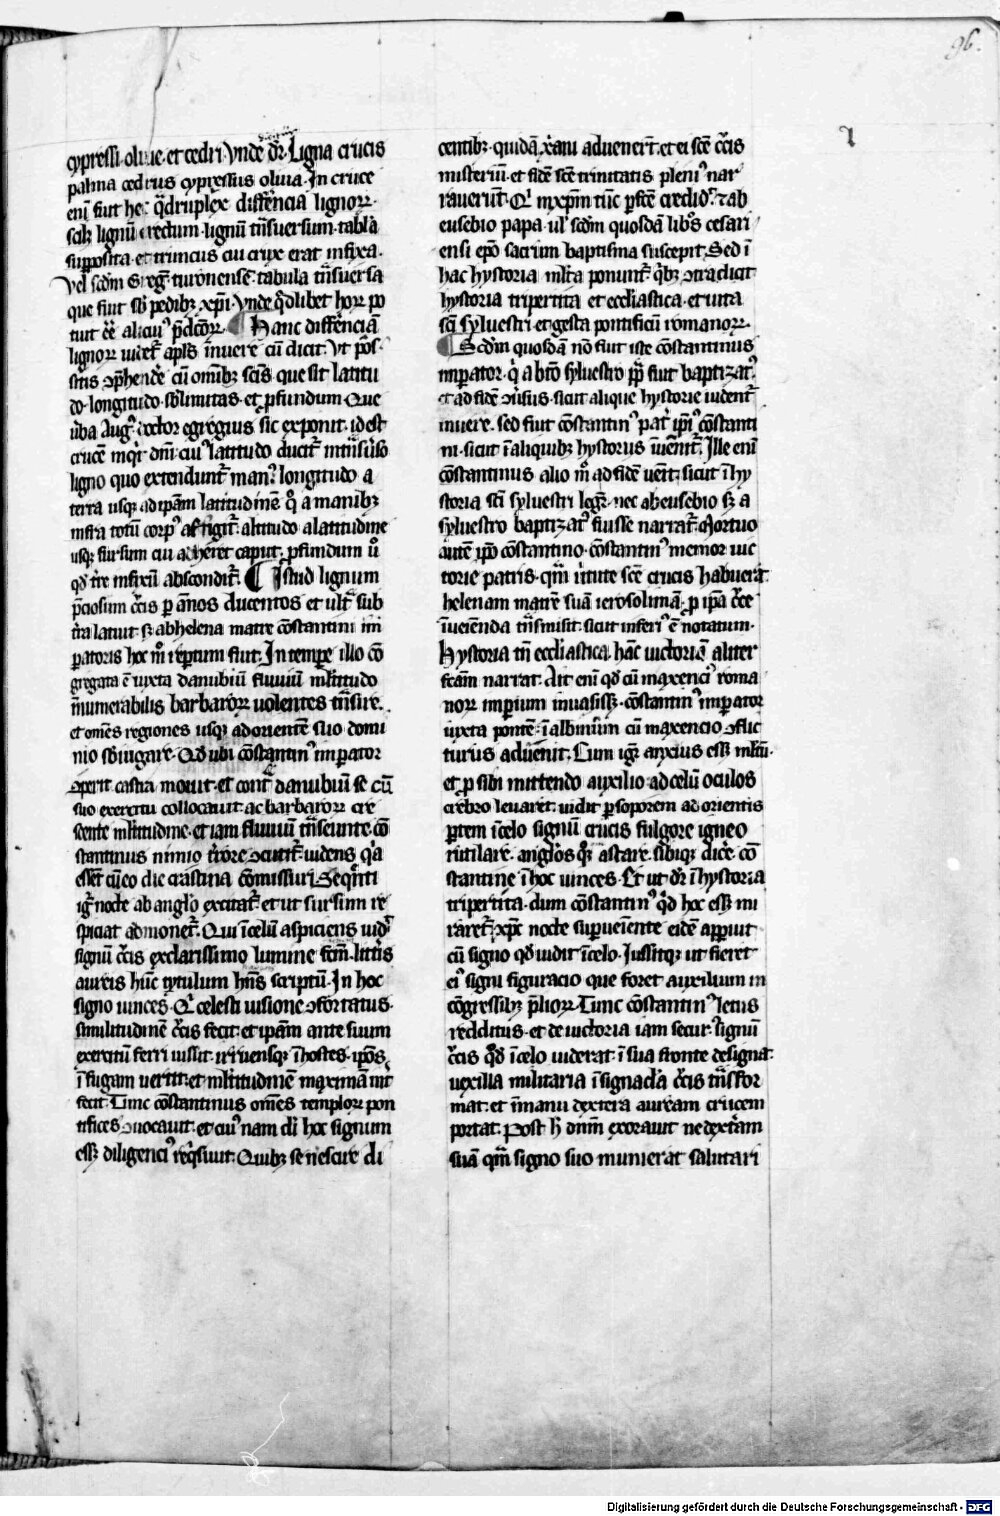 96.
cypressi oliue. et cedri. Vnde dr̄. Ligna crucis
palma cedrus cypressus oliua. In cruce
eni᷒ fuit hec q̄druplex differencia lignoꝝ.
scilꝫ lignū erectum. lignū tn̄suersum. tabl̓a
supposita. et truncus cui crux erat infixa.
Vel scd̄m Greg᷒ turonensē. tabula tn̄suersa
que fuit sb̓ pedibꝫ xp̄i. Vnde q̄dlibet hoꝝ po
tuit eē alicui᷒ p̄dcōꝝ. ¶ Hanc differēciā
lignoꝝ uidet᷑ apl̄s īnuere cū dicit. Vt pos̄
sitis ↄp̄hendē cū omībꝫ scīs. que sit latitu
do. longitudo. sb̓limitas. et ꝓfundum. Que
ūba Aug᷒. doctor egregius sic exponit. id est
crucē inquit dn̄i. cui᷒ latitudo dicit᷑ tn̄suersū
ligno quo extendunt᷑ man᷒. longitudo a
terra usqꝫ ad ip̄am latitudinē qͦ a manibꝫ
infra totū corp᷒ affigit᷑. altitudo a latitudine
usqꝫ sursum cui adheret caput. ꝓfundum ū̊
qd̓ tr̄e infixū abscondit᷑. ¶ Istud lignum
p̄ciosum cru̓cis ꝑ ānos ducentos et ult᷑ sub
tr̄a latuit. sꝫ ab helena matre cōstantini im
ꝑatoris hoc mͦ reꝑtum fuit. In tempe illo cō
gregata ē iuxta danubiū fluuiū ml̓titudo
īnumerabilis barbaroꝝ uolentes tn̄sire.
et omēs regiones usqꝫ ad orientē suo domi
nio sb̓iugare. Qd̓ ubi cōstantin᷒ imꝑator
ꝯperit castra mouit. et cont᷑ danubiū se cū
suo exercitu collocauit. ac barbaroꝝ cre
scente ml̓titudine. et iam fluuiū tn̄seunte. cō
stantinus nimio tr̓rore ↄcutit᷑. uidens q̓a
esset cū eo die crastina cōmissuri. Seq̄nti
ig᷑ nocte ab angl̓o excitat᷑. et ut sursum re
spiciat admonet᷑. Qui ī celū aspiciens uid᷑
signū cru̓cis ex clarissimo lumine fcm̄. litt᷑is
aureis hūc tytulum hn̄s scriptū. In hoc
signo uinces. Qui celesti uisione ↄfortatus.
similitudinē cru̓cis fecit. et ip̄am ante suum
exercitū ferri iussit. irruensqꝫ ī hostes. ip̄os
ī fugam uertit. et ml̓titudinē maximā int̓
fecit. Tunc cōstantinus omēs temploꝝ pon
tifices ↄuocauit. et cui᷒nam di̓ hoc signum
essꝫ diligenci᷒ reqͥsiuit. Quibꝫ se nescire di
centibꝫ. quidā xp̄iani aduenerūt. et ei sc̄e cru̓cis
misteriū. et fidē sc̄e trinitatis pleni᷒ nar
rauerūt. Qui in xp̄m tūc ꝑfcē credid᷑. ⁊ ab
eusebio papa. ul᷒ scd̄m quosdā lib᷑os cesari
ensi ep̄o sacrum baptisma suscepit. Sed ī
hac hystoria ml̓ta ponunt᷑. qͥbꝫ ↄtradicit
hystoria tripertita et eccliastica. et uita
sc̄i sylvestri et gesta pontificū romanoꝝ.
¶ Scd̄m quosdā nō fuit iste cōstantinus
imꝑator. qͥ a bt̄o syluestro pp̄ fuit baptizat᷒.
et ad fidē ↄūsus. sicut alique hystorie uident᷑
innuere. sed fuit cōstantin᷒ pat᷑ ip̄i᷒ cōstanti
ni. sicut ī aliquibꝫ hystoriis īuenit᷑. Ille eni᷒
cōstantinus alio mͦ ad fidē uēit. sicut ī hy
storia sc̄i syluestri legit᷑. nec ab eusebio sꝫ a
syluestro baptizat᷒ fuisse narrat᷑. Mortuo
autē ip̄o cōstantino. cōstantin᷒ memor uic
torie patris. qm̄ ūtute sc̄e crucis habuerat
helenam matrē suā ierosolimā. ꝓ ip̄a cru̓ce
īueiēnda tn̄smisit. sicut inferi᷒ ē notatum.
Hystoria tn̄ eccliastica. hāc uictoriā aliter
fcām narrat. Ait eni᷒ qd̓ cū maxenci᷒ roma
noꝝ imꝑium inuasissꝫ. cōstantin᷒ imꝑator
iuxta pontē ī albinum cū maxencio ↄflic
turus aduenit. Cum ig᷑ anxius essꝫ ml̓tū.
et ꝓ sibi mittendo auxilio ad celū oculos
crebro leuaret. uidit ꝑ soporem ad orientis
ꝑtem ī celo signū crucis fulgore igneo
rutilare. angl̓os qꝫ astare. sibiqꝫ dicē. cō
stantine ī hoc uinces. Et ut dr̄ ī hystoria
tripertita. dum cōstantin᷒ qͥd hoc essꝫ mi
raret᷑. xp̄c nocte superueiente eidē apꝑuit
cū signo qd̓ uidit ī celo. Iussitqꝫ ut fieret
ei᷒ signi figuracio que foret auxilium in
cōgressibꝫ p̄lioꝝ. Tunc cōstantin᷒ letus
redditus. et de uictoria iam secur᷒. signū
cru̓cis qd̓ ī celo uiderat. ī sua fronte designat.
uexilla militaria ī signacl̓a cru̓cis tn̄sfor
mat. et ī manu dextera auream crucem
portat. Post hͦ dn̄m exorauit ne dext᷑am
suā quā signo suo munierat salutari
Digitalisierung gefördert durch die Deutsche Forschungsgemeinschaft - DFG